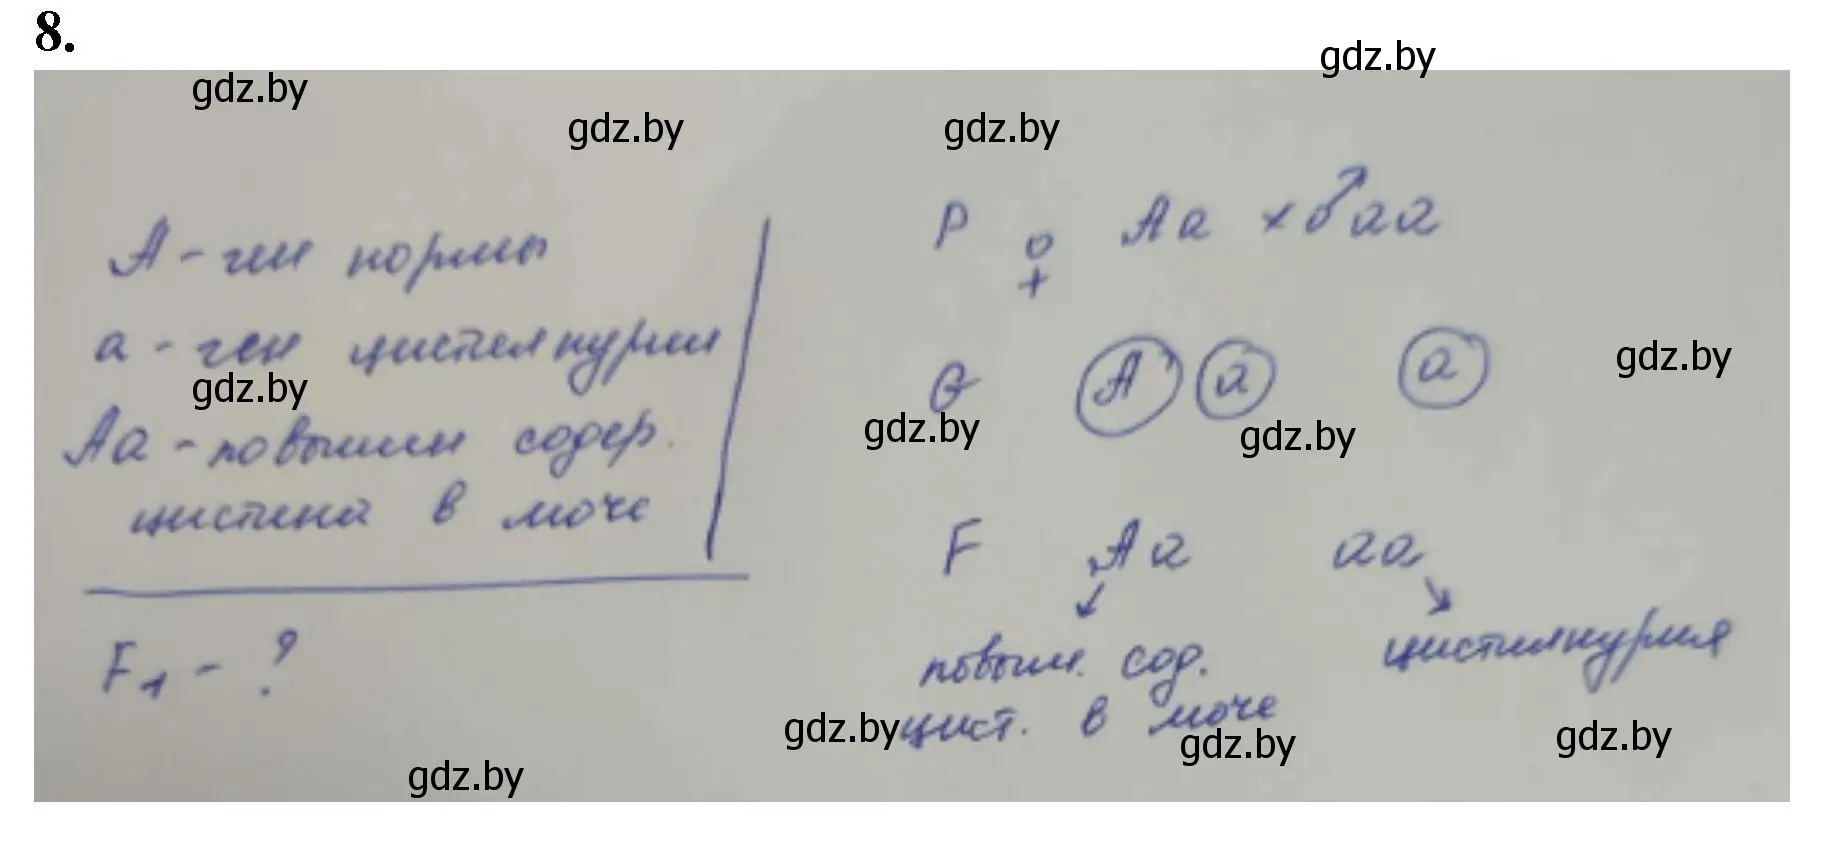 8.
gdz.by
gdz.by
gdz.by
gdz.by
А - ген нормы
а - ген цистинурии
gdz.by
Аа - повышен содер.
цистина в моче
F₁ - ?
gdz.by
P ♀ Аа × ♂ аа
gdz.by
G А а а
gdz.by
gdz.by
F Аа аа
повыш. сод. цистинурия
gdz.by
цист. в моче
gdz.by
gdz.by